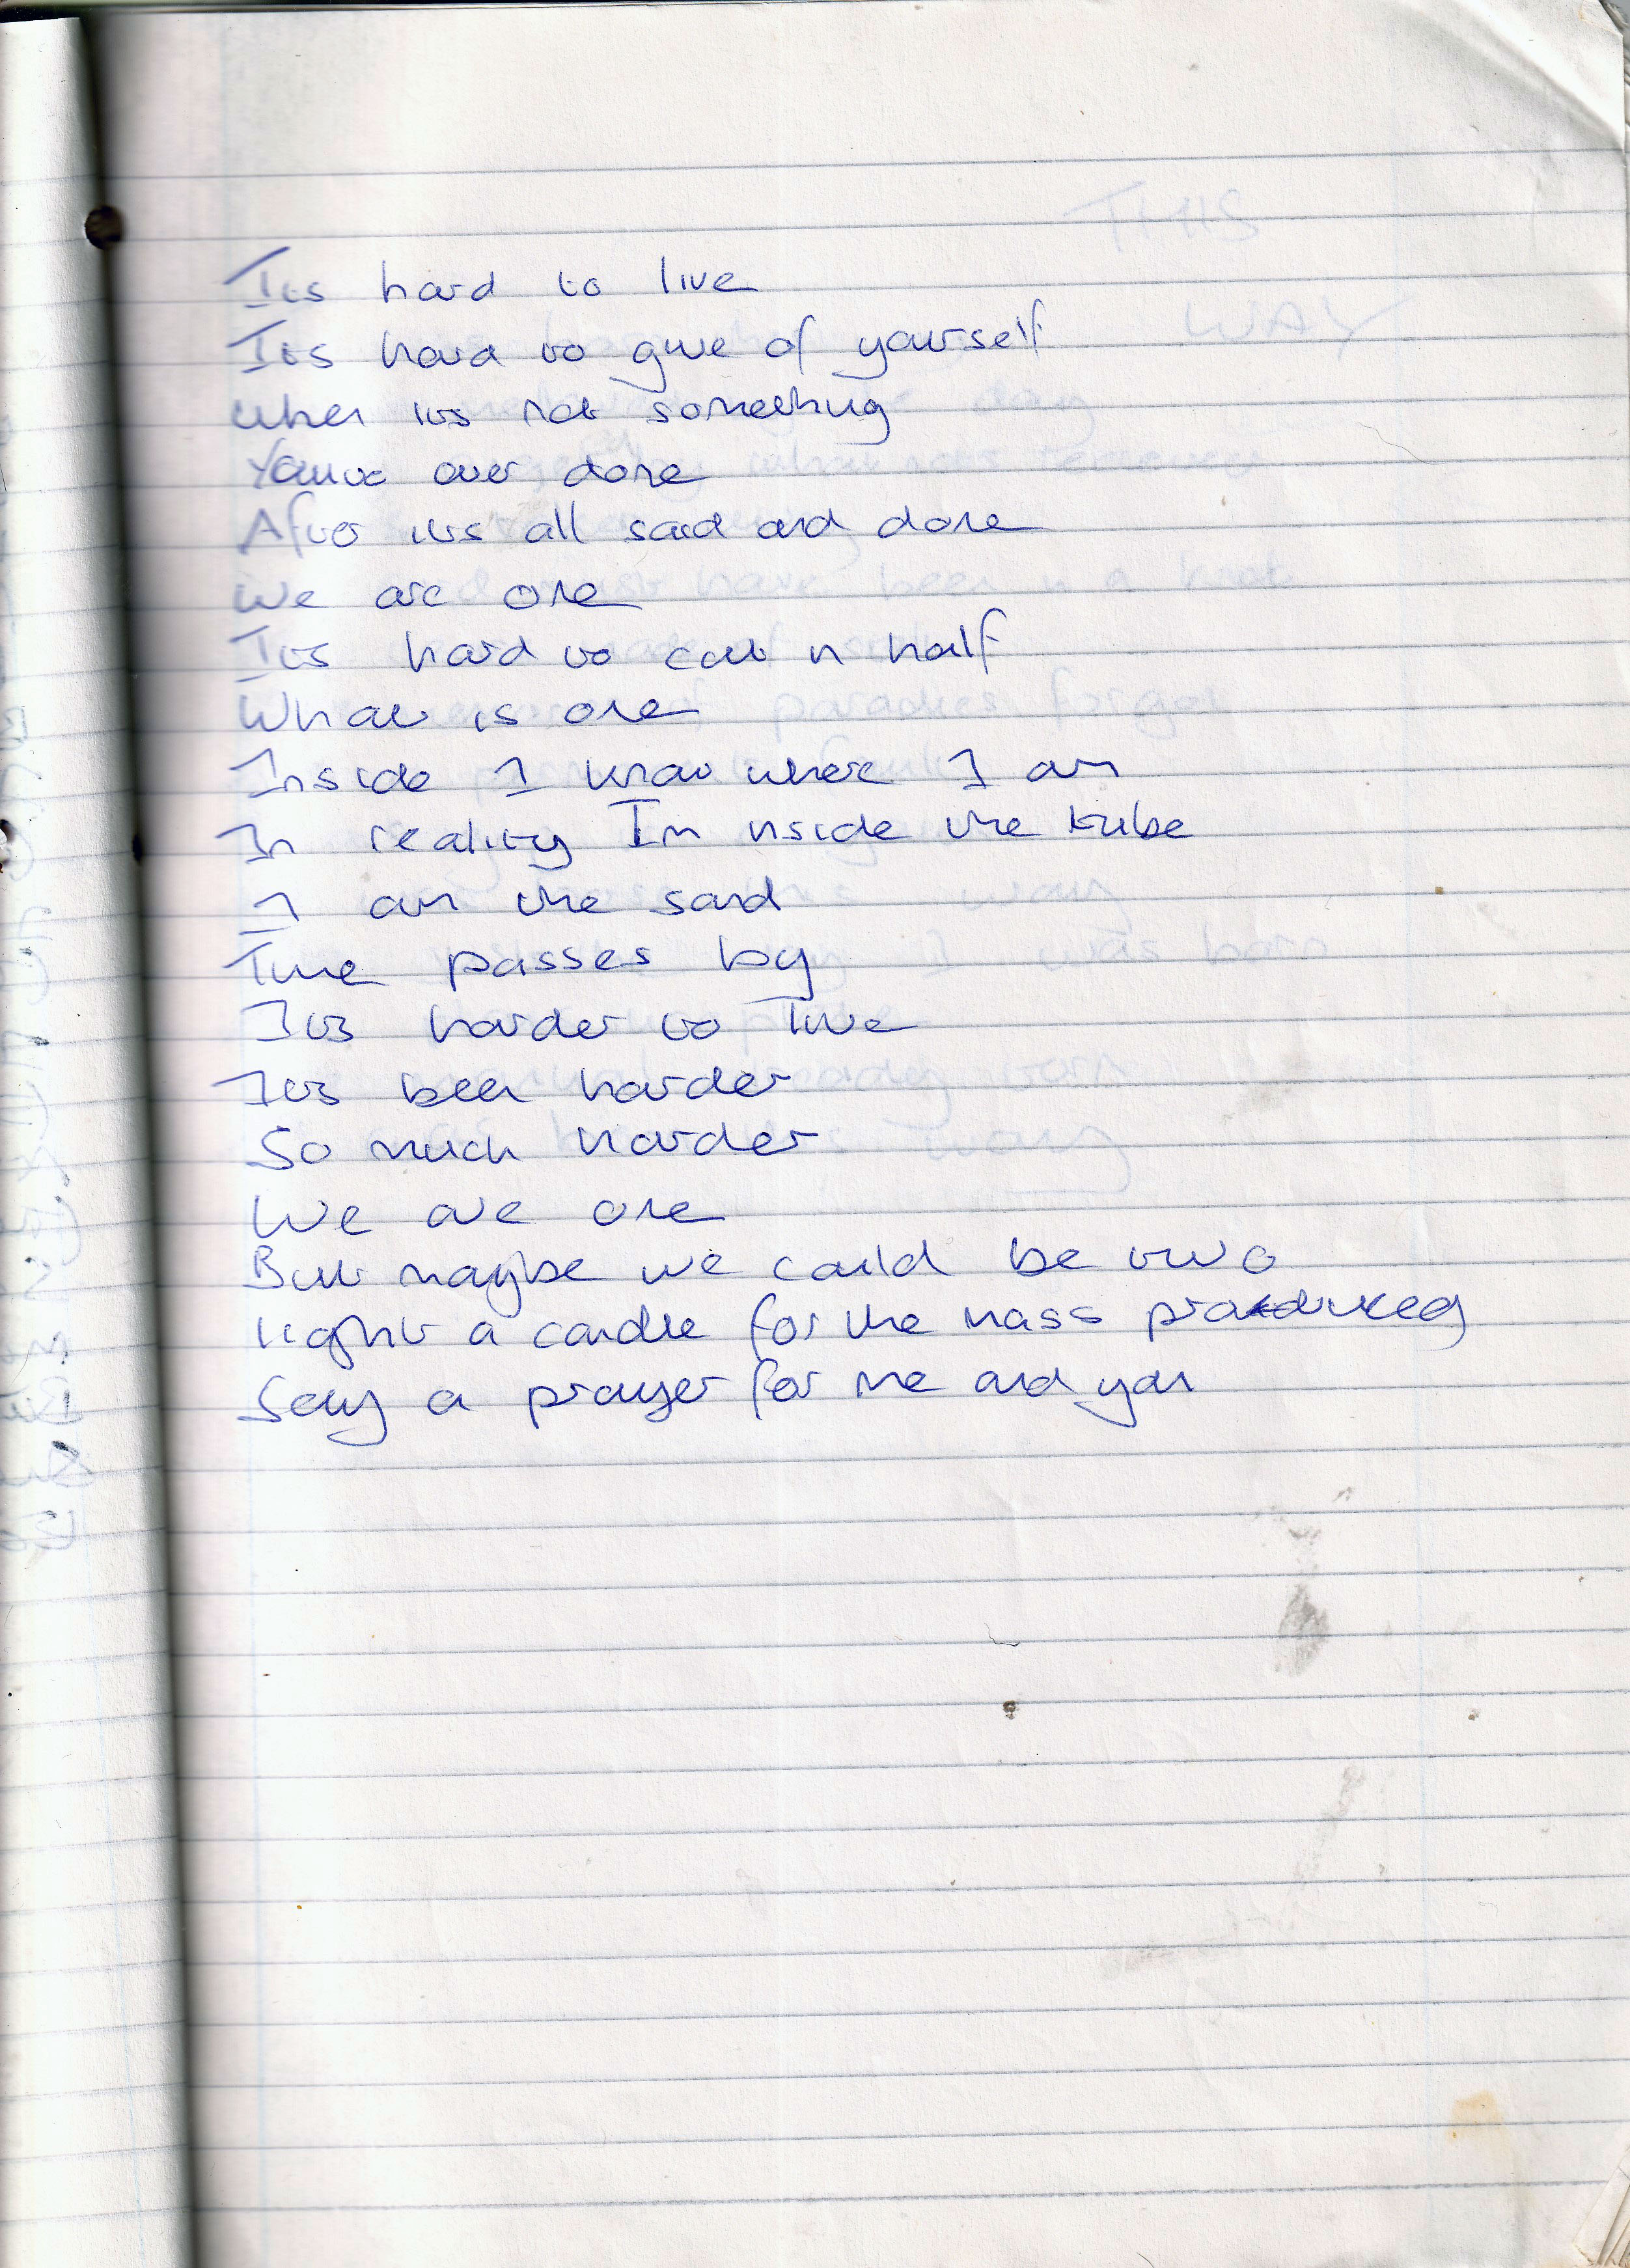 Its hard to live
Its hard to give of yourself
when its not something
Youve over done
After its all said and done
We are one
Its hard to cut in half
What is one
Inside I know where I am
In reality Im inside the tube
I am the sand
Time passes by
Its harder to live
Its been harder
So much harder
We are one
But maybe we could be two
light a candle for the mass produced
Say a prayer for me and you
THIS
WAY